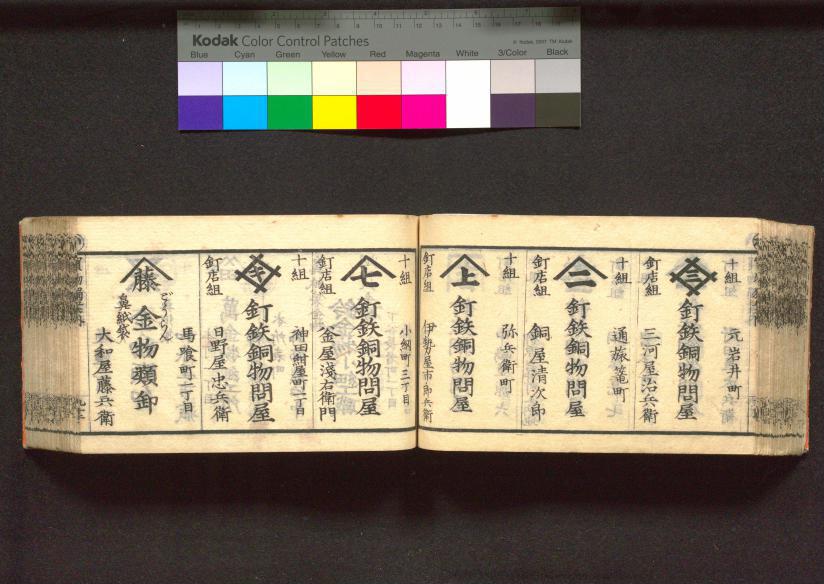 Kodak Color Control Patches
© Kodak, 2007 TM: Kodak
Blue Cyan Green Yellow Red Magenta White 3/Color Black
十組
元岩井町
釘鉄銅物問屋
釘店組
三河屋治兵衛
十組
通旅篭町
二
釘鉄銅物問屋
釘店組
銅屋清次郎
十組
弥兵衛町
上
釘鉄銅物問屋
釘店組
伊勢屋市郎兵衛
十組
小網町三丁目
七
釘鉄銅物問屋
釘店組
釜屋浅右衛門
十組
神田紺屋町二丁目
キ
釘鉄銅物問屋
釘店組
日野屋忠兵衛
馬喰町二丁目
藤
金物類卸
鼻紙袋
大和屋藤兵衛